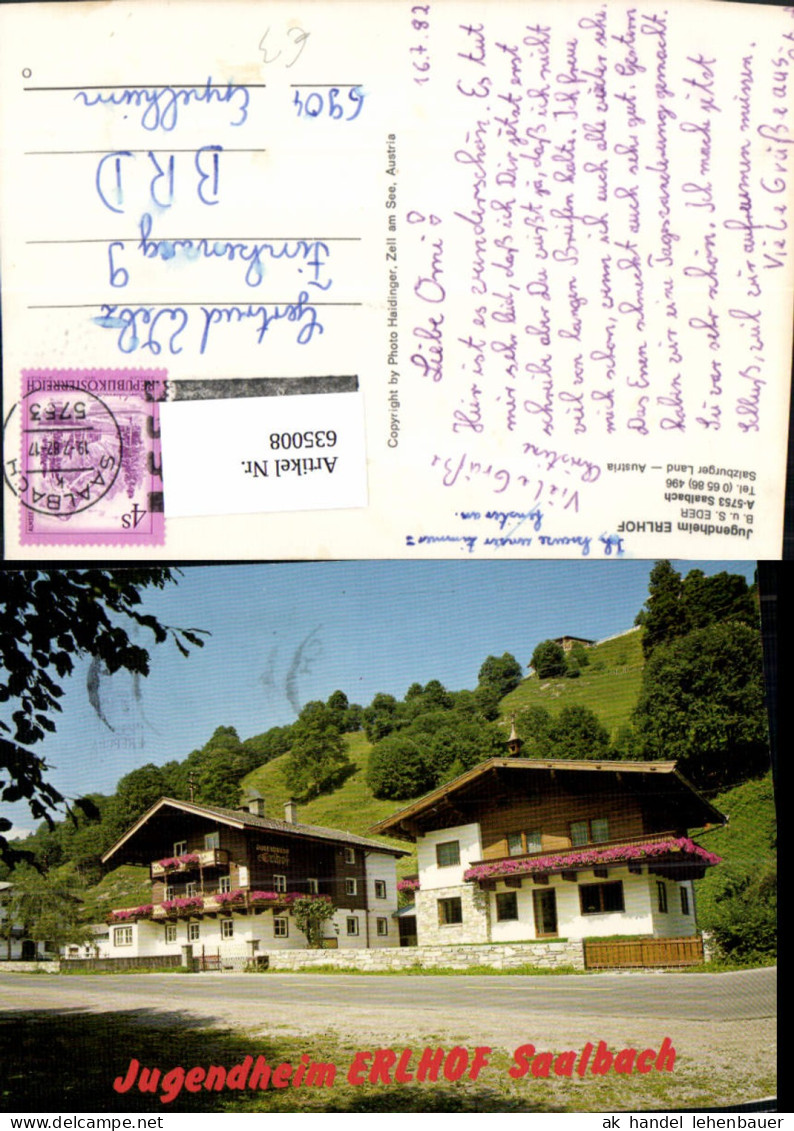 16.7.82
Liebe Omi!
Hier ist es wunderschön. Es tut
mir sehr leid, daß ich Dir jetzt erst
schreibe aber Du weißt ja, daß ich nicht
viel von langen Briefen halte. Ich freue
mich schon, wenn ich euch alle wieder sehe.
Das Essen schmeckt auch sehr gut. Gestern
haben wir eine Tageswanderung gemacht.
Sie war sehr schön. Ich mache jetzt
Schluß, weil wir aufräumen müssen.
Viele Grüße aus
Viele Grüße
Christine
Ich kreuze unser Zimmer=
fenster an.
Jugendheim ERLHOF
B. u. S. EDER
A-5753 Saalbach
Tel. (0 65 86) 496
Salzburger Land — Austria
Copyright by Photo Haidinger, Zell am See, Austria
Artikel Nr.
635008
REPUBLIK ÖSTERREICH
4S
5753
SAALBACH
k
Gertrud
Finkenweg 9
BRD
6904
Eppelheim
€3
JUGENDHEIM
Erlhof
Jugendheim ERLHOF Saalbach
ak handel lehenbauer